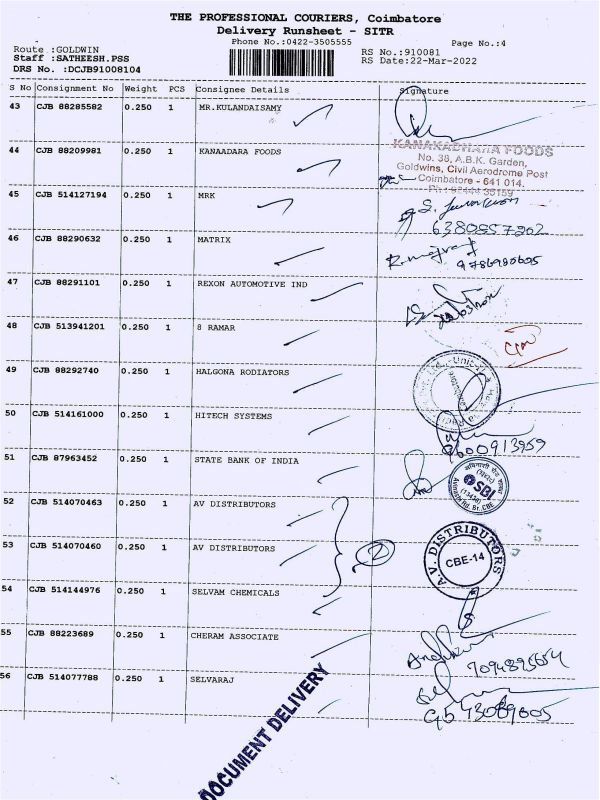 THE PROFESSIONAL COURIERS, Coimbatore
Delivery Runsheet - SITR
Phone No.:0422-3505555 Page No.:4
Route :GOLDWIN RS No.:910081
Staff :SATHEESH.PSS RS Date:22-Mar-2022
DRS No. :DCJB91008104
S No Consignment No Weight PCS Consignee Details Signature
43 CJB 88285582 0.250 1 MR.KULANDAISAMY
44 CJB 88209981 0.250 1 KANAADARA FOODS
KANAKADHARA FOODS
No. 38, A.B.K. Garden,
Goldwins, Civil Aerodrome Post
Coimbatore - 641 014.
45 CJB 514127194 0.250 1 MRK
6380557202
46 CJB 88290632 0.250 1 MATRIX
47 CJB 88291101 0.250 1 REXON AUTOMOTIVE IND
48 CJB 513941201 0.250 1 8 RAMAR
49 CJB 88292740 0.250 1 HALGONA RODIATORS
50 CJB 514161000 0.250 1 HITECH SYSTEMS
9600913959
51 CJB 87963452 0.250 1 STATE BANK OF INDIA
SBI
52 CJB 514070463 0.250 1 AV DISTRIBUTORS
53 CJB 514070460 0.250 1 AV DISTRIBUTORS
2
A.V. DISTRIBUTORS
CBE-14
54 CJB 514144976 0.250 1 SELVAM CHEMICALS
55 CJB 88223689 0.250 1 CHERAM ASSOCIATE
7094895654
56 CJB 514077788 0.250 1 SELVARAJ
DOCUMENT DELIVERY